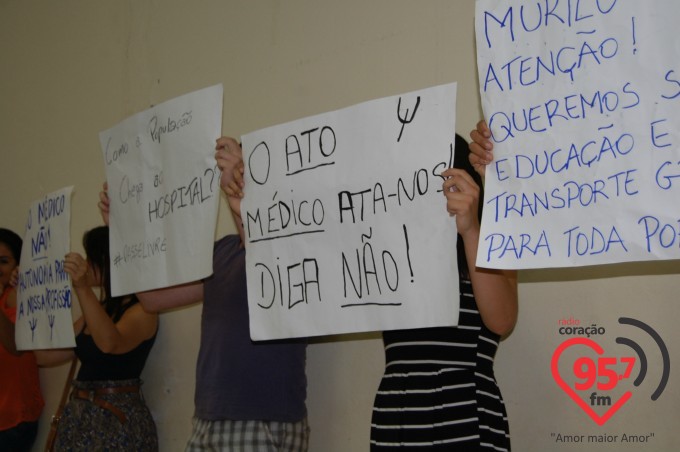 O MÉDICO
NÃO
AUTONOMIA PARA
A NOSSA PROFISSÃO
COMO A POPULAÇÃO
CHEGA AO
HOSPITAL?
#PASSELIVRE
O ATO
MÉDICO ATA-NOS!
DIGA NÃO!
MURILO
ATENÇÃO!
QUEREMOS S
EDUCAÇÃO E
TRANSPORTE G
PARA TODA POP
rádio coração
95,7
fm
"Amor maior Amor"